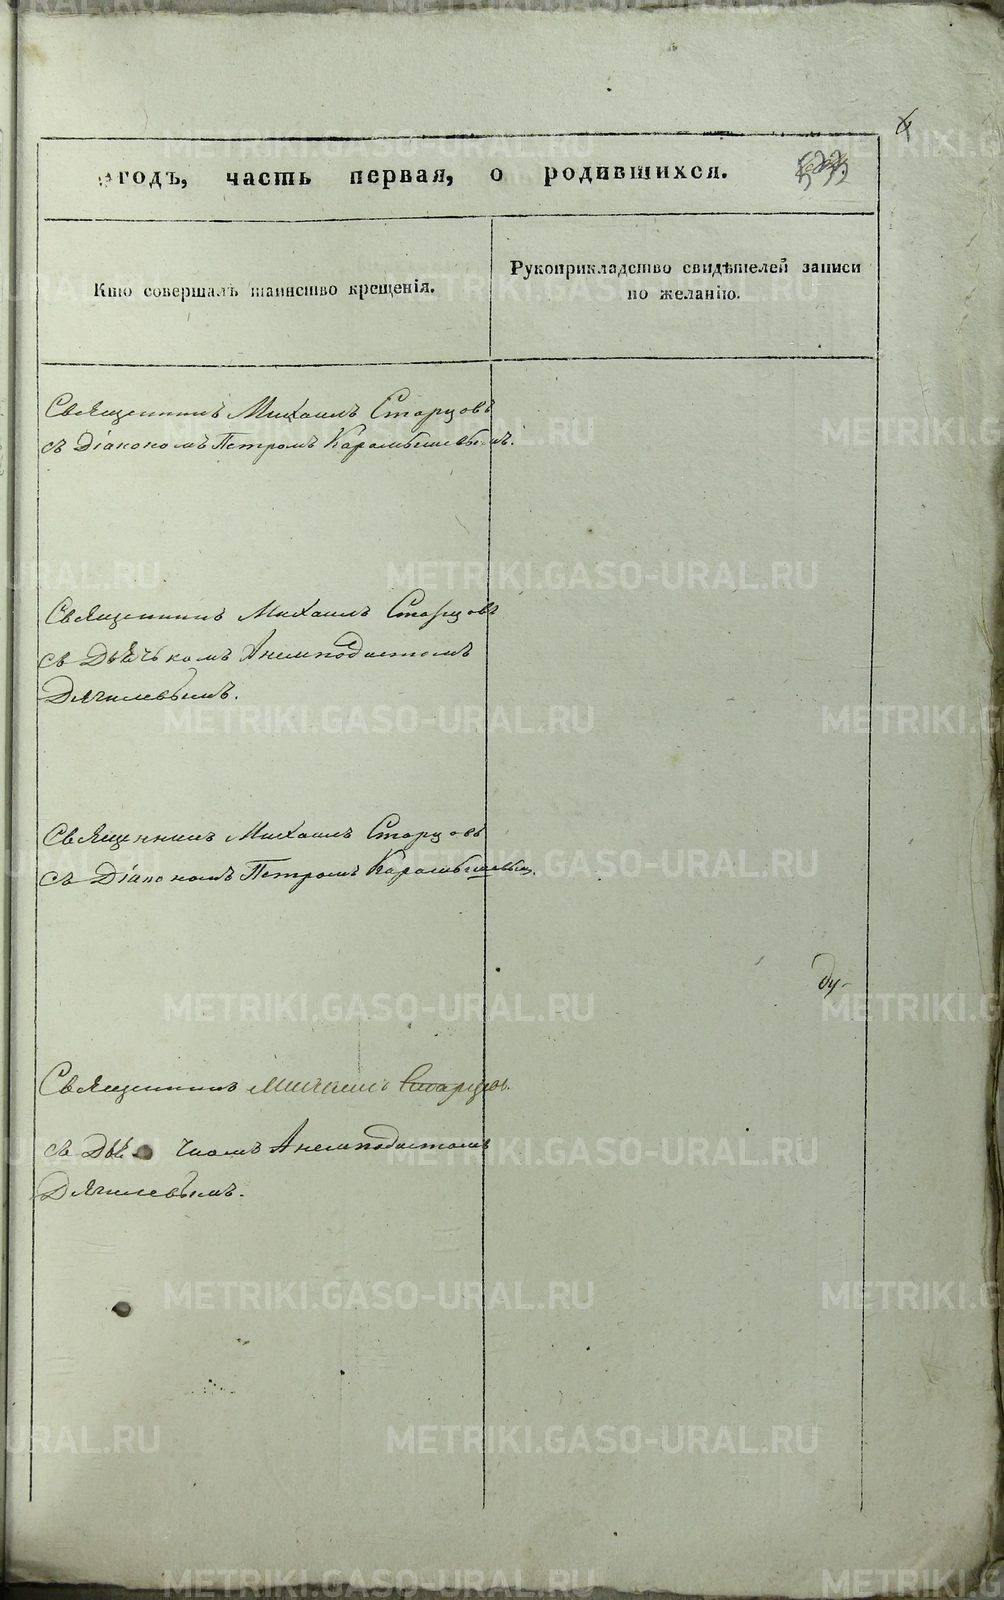 годъ, часть первая, о родившихся.
Кто совершалъ таинство крещенія.
Рукоприкладство свидѣтелей записи
по желанію.
Священникъ Михаилъ Старцовъ
съ Діакономъ Петромъ Карамышевымъ.
Священникъ Михаилъ Старцовъ
съ Дьячькомъ Анемподистомъ
Дягилевымъ.
Священникъ Михаилъ Старцовъ
съ Діакономъ Петромъ Карамышевым.
ду-
Священникъ Михаилъ Старцов.
съ Дья чкомъ Анемподистомъ
Дягилевымъ.
METRIKI.GASO-URAL.RU